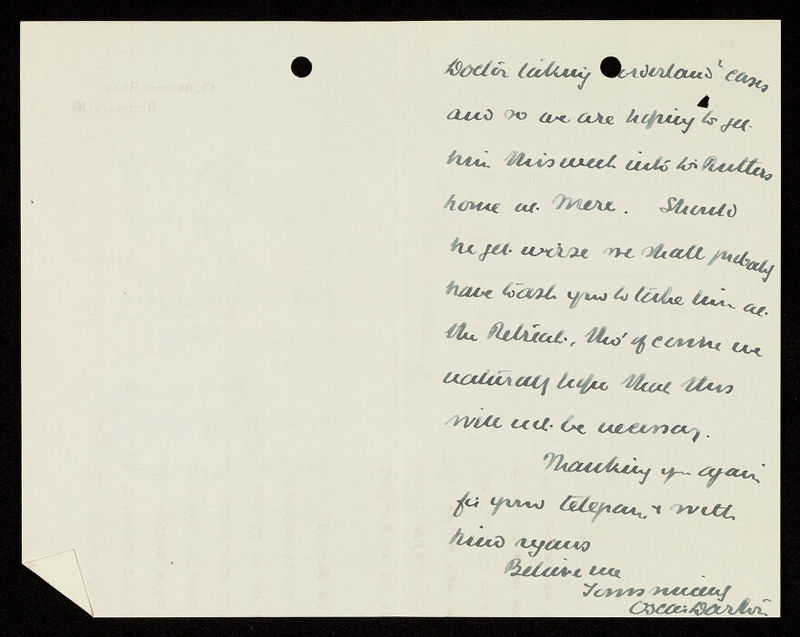 Doctor taking 'orderland' cases
and so we are hoping to get
him this week into Dr Rutters
home at Mere. Should
he get worse we shall probably
have to ask you to take him at
the Retreat, tho' of course we
naturally hope that this
will not be necessary.
Thanking you again
for your telegram & with
kind regards
Believe me
Yours sincerely
Oscar